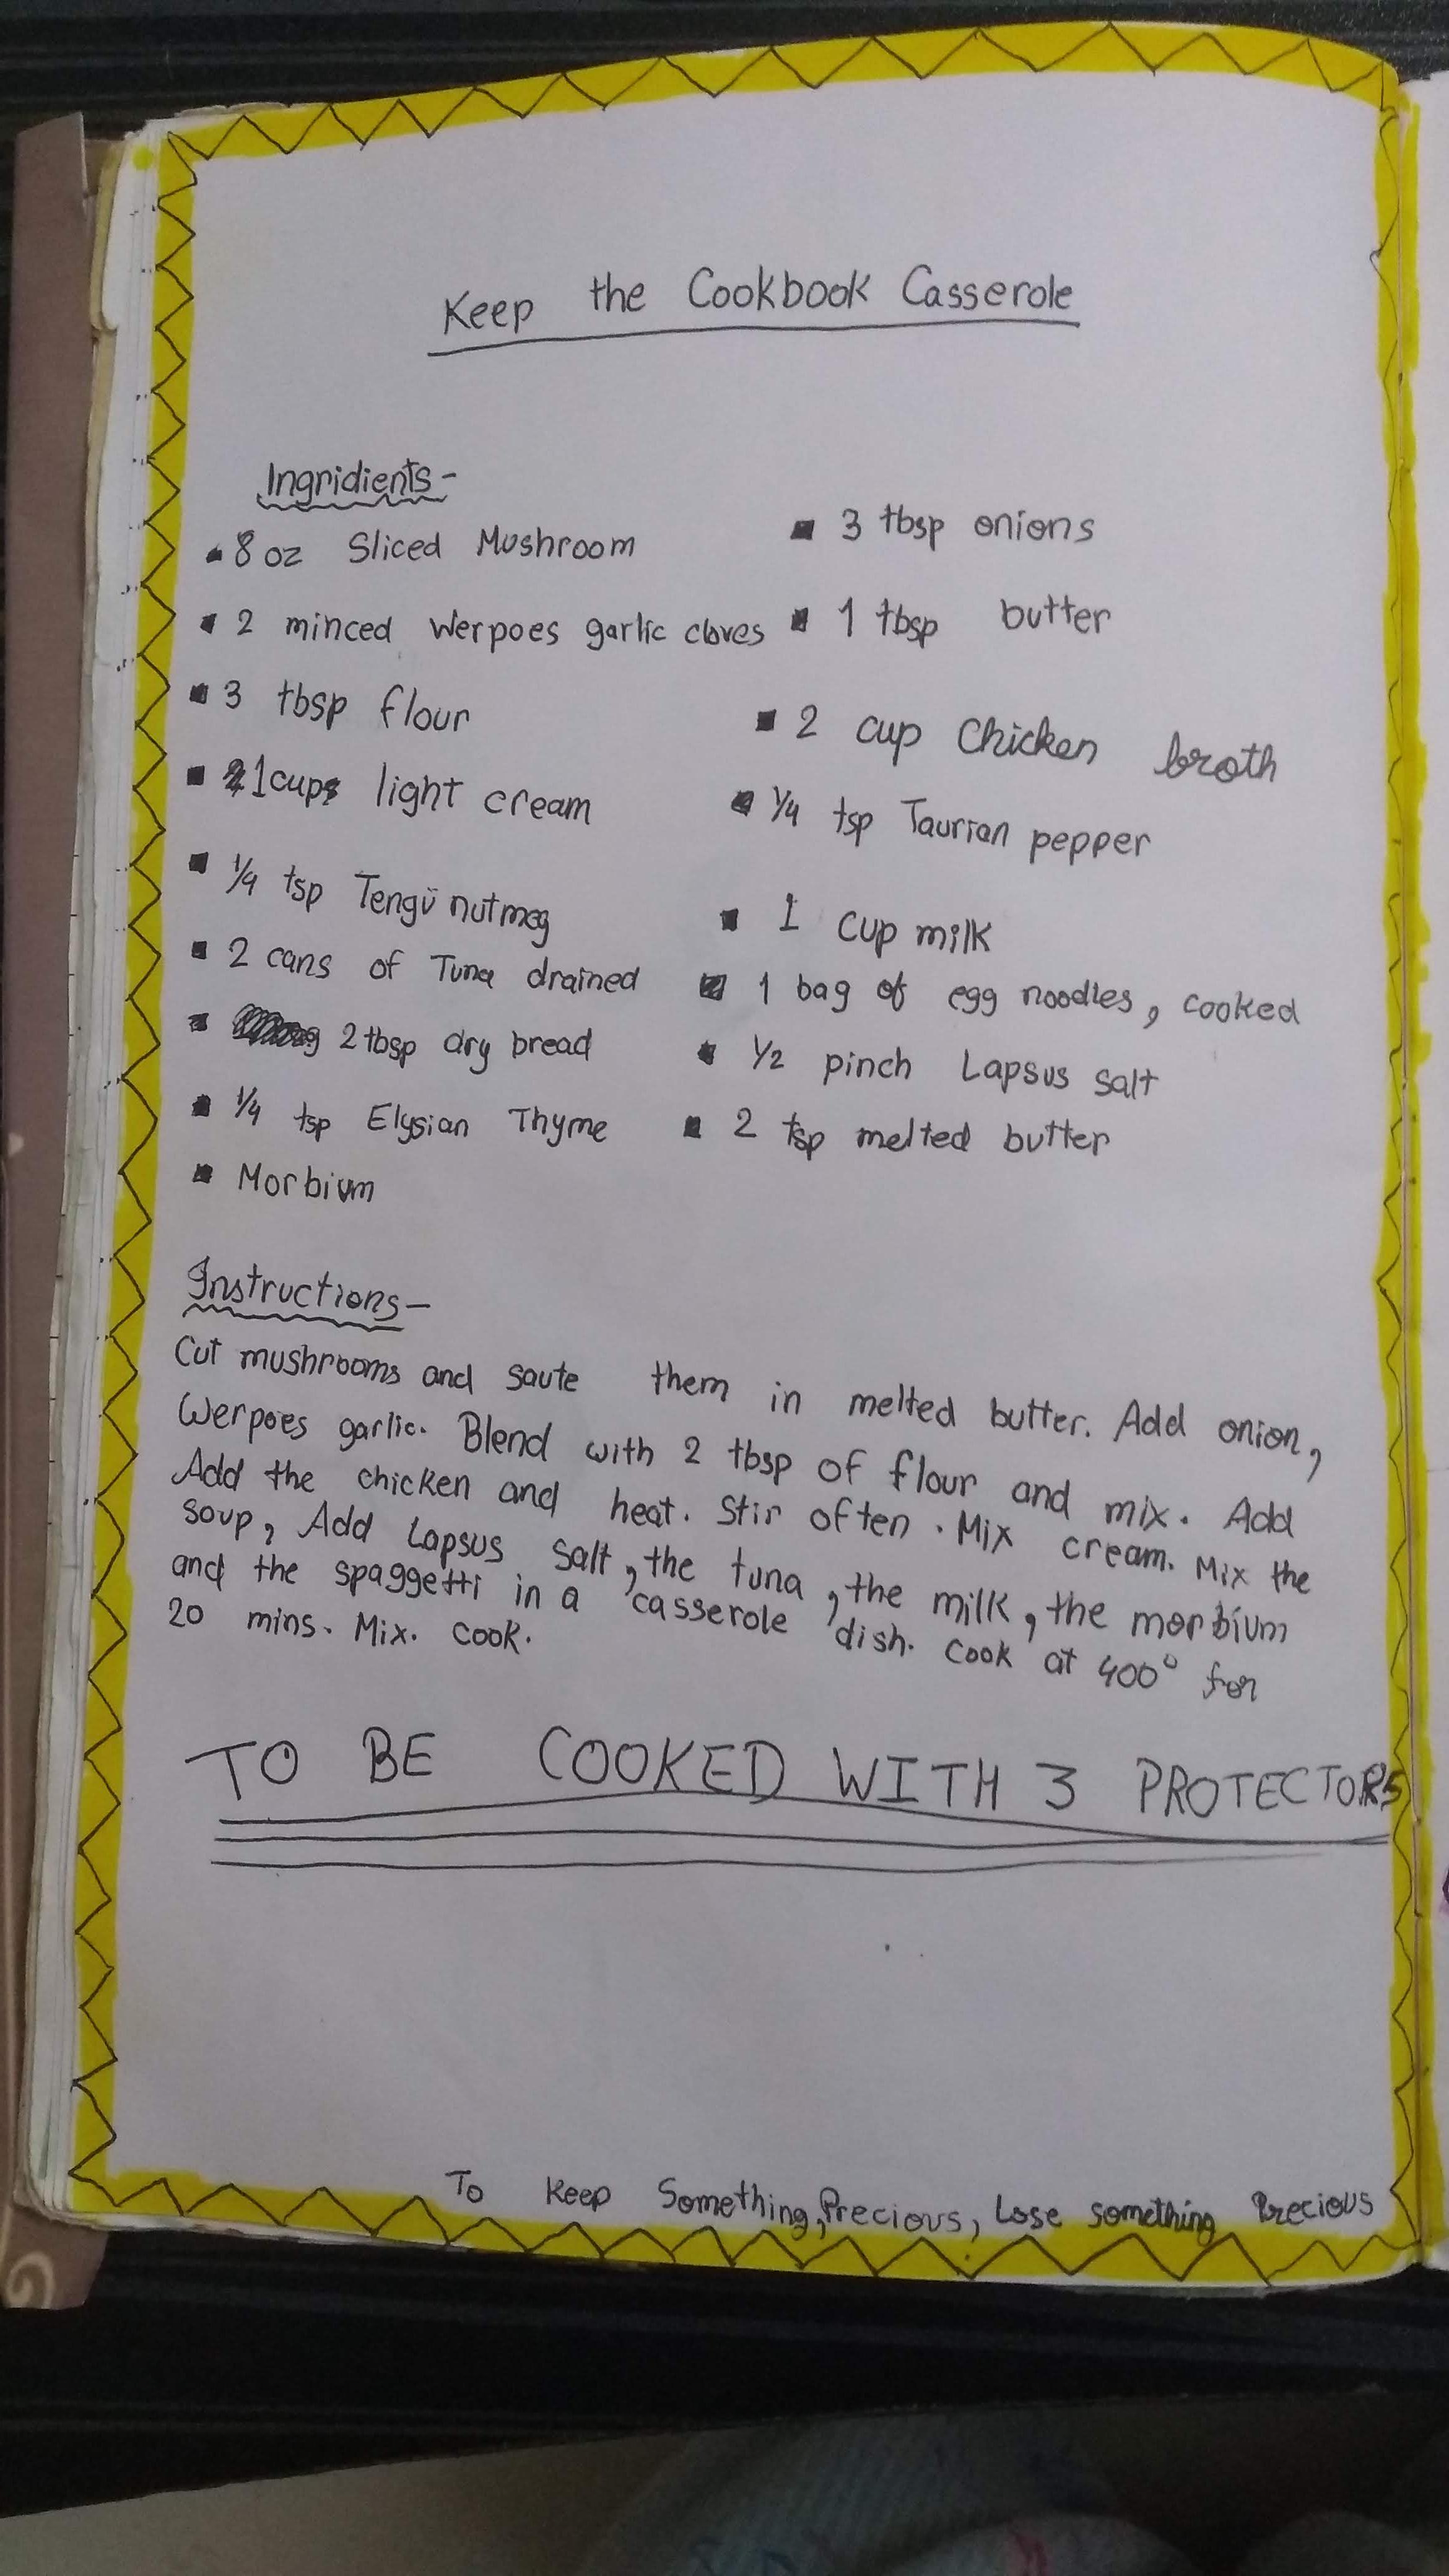 Keep the Cookbook Casserole
Ingridients-
8 oz Sliced Mushroom
3 tbsp onions
2 minced Werpoes garlic cloves
1 tbsp butter
3 tbsp flour
2 cup Chicken broth
1 cup light cream
1/4 tsp Taurian pepper
1/4 tsp Tengu nutmeg
1 Cup milk
2 cans of Tuna drained
1 bag of egg noodles, cooked
2 tbsp dry bread
1/2 pinch Lapsus salt
1/4 tsp Elysian Thyme
2 tsp melted butter
Morbium
Instructions-
Cut mushrooms and saute them in melted butter. Add onion,
Werpoes garlic. Blend with 2 tbsp of flour and mix. Add
Add the chicken and heat. Stir often. Mix cream. Mix the
soup, Add Lapsus salt, the tuna, the milk, the morbium
and the spaggetti in a casserole dish. Cook at 400° for
20 mins. Mix. Cook.
TO BE COOKED WITH 3 PROTECTORS
To Keep Something, Precious, Lose something Precious